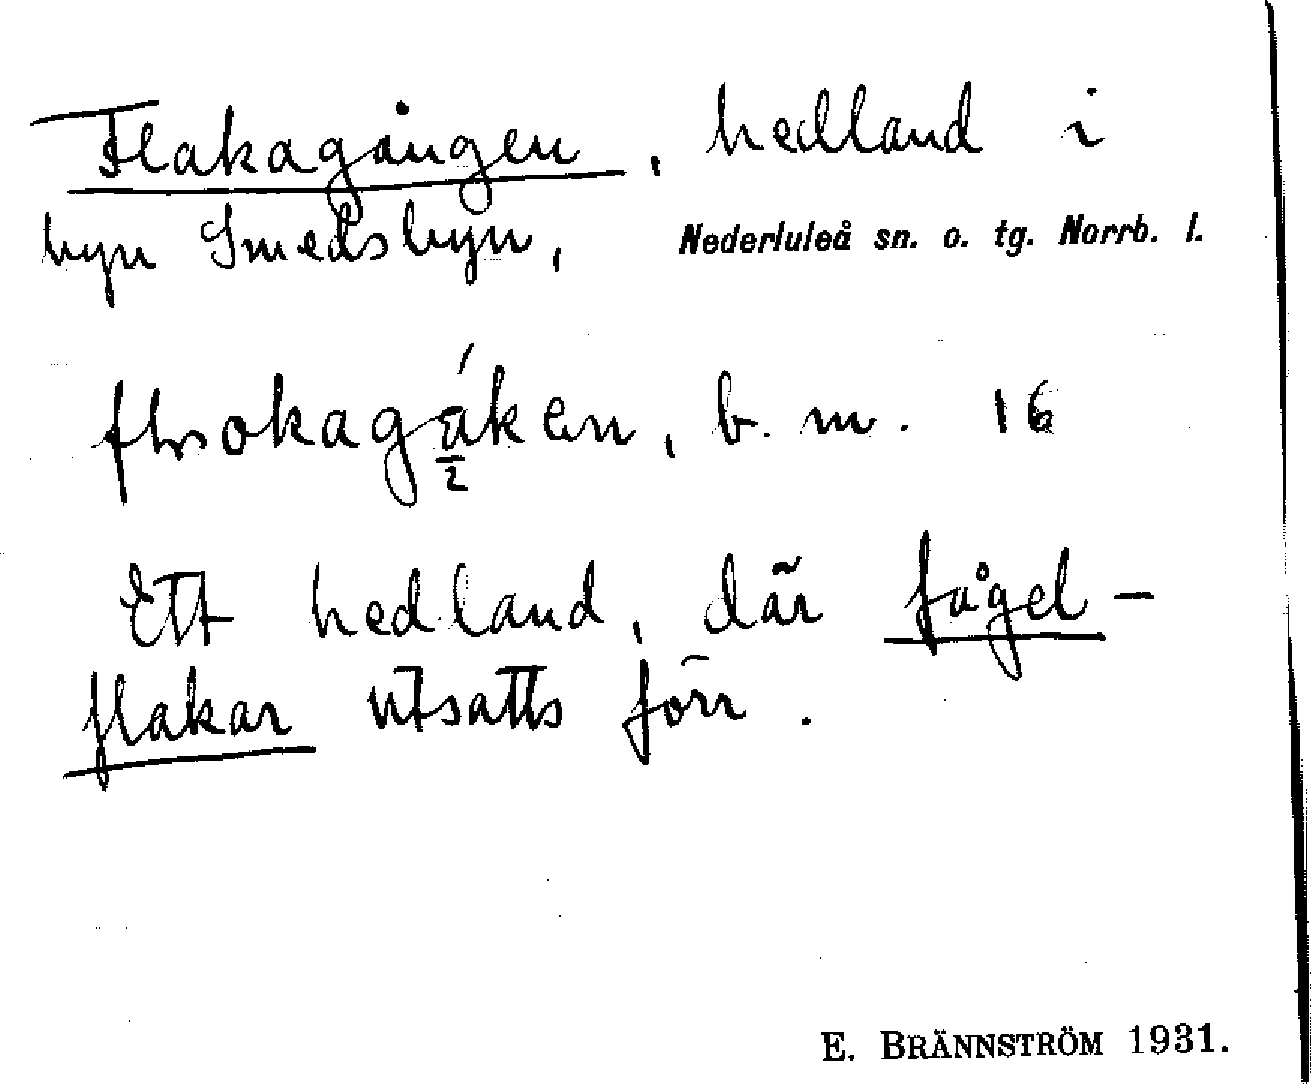 Flakagången, hedland i
byn Smedsbyn, Nederluleå sn. o. tg. Norrb. l.
b. m. 16
Ett hedland, där fågel-
flakar utsatts förr.
E. BRÄNNSTRÖM 1931.